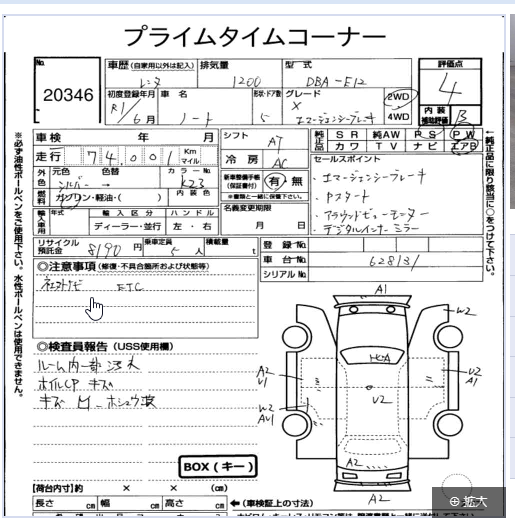 プライムタイムコーナー
No.
20346
車歴 (自家用以外は記入)
レンタ
排気量
1200
型式
DBA-E12
評価点
4
初度登録年月
R1/6月
車名
ノート
形状・ドア数
5
グレード
X
エマージェンシーブレーキ
2WD
4WD
内装
補助評価
B
車検 年 月
走行 74,001 Km
マイル
シフト
AT
冷房
AC
純正品
SR 純AW PS PW
カワ TV ナビ エアB
外色
元色
シルバー
色替
カラーNo.
K23
燃料
ガソリン・軽油・( )
内装色
新車整備手帳
(保証書付)
有・無
セールスポイント
・エマージェンシーブレーキ
・Pスタート
・アラウンドビューモニター
・デジタルインナーミラー
輸入車用
年式
輸入区分
ディーラー・並行
ハンドル
左・右
名義変更期限
月 日
リサイクル
預託金
8190円
乗車定員
5人
積載量
t
登録No.
車台No.
628131
シリアルNo.
◎注意事項 (修復・不具合箇所および状態等)
ETC
◎検査員報告 (USS使用欄)
ルーム内一部汚れ
ホイルCP キズ
BOX (キー)
A1
W2
A2
U1
W2
AU1
U2
A1
U2
A2
A2
※必ず油性ボールペンをご使用下さい。水性ボールペンは使用できません。
←純正品に限り該当に○をつけて下さい。
【荷台内寸】約 × × (cm)
長さ cm 幅 cm 高さ cm
←(車検証上の寸法)
拡大